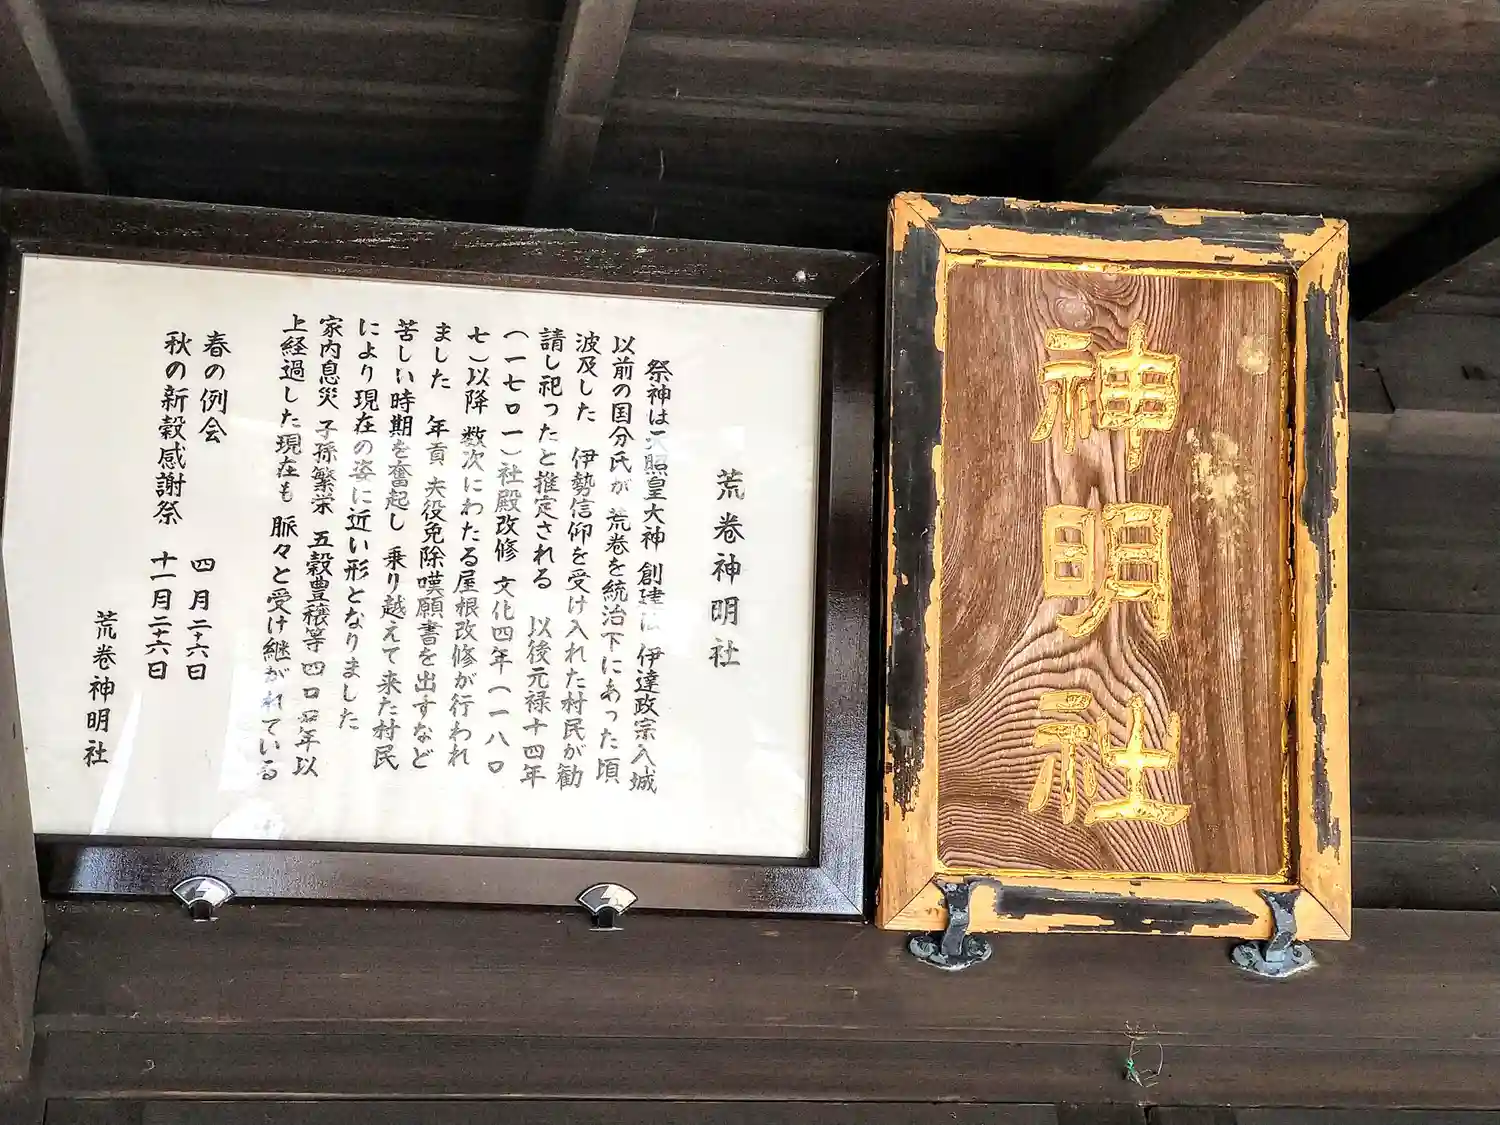 神明社
荒巻神明社
祭神は天照皇大神 創建は 伊達政宗入城
以前の国分氏が 荒巻を統治下にあった頃
波及した 伊勢信仰を受け入れた村民が勧
請し祀ったと推定される 以後元禄十四年
(一七〇一)社殿改修 文化四年(一八〇
七)以降 数次にわたる屋根改修が行われ
ました 年貢 夫役免除嘆願書を出すなど
苦しい時期を奮起し 乗り越えて来た村民
により現在の姿に近い形となりました
家内息災 子孫繁栄 五穀豊穣等 四〇〇年以
上経過した現在も 脈々と受け継がれている
春の例会 四月二十六日
秋の新穀感謝祭 十一月二十六日
荒巻神明社